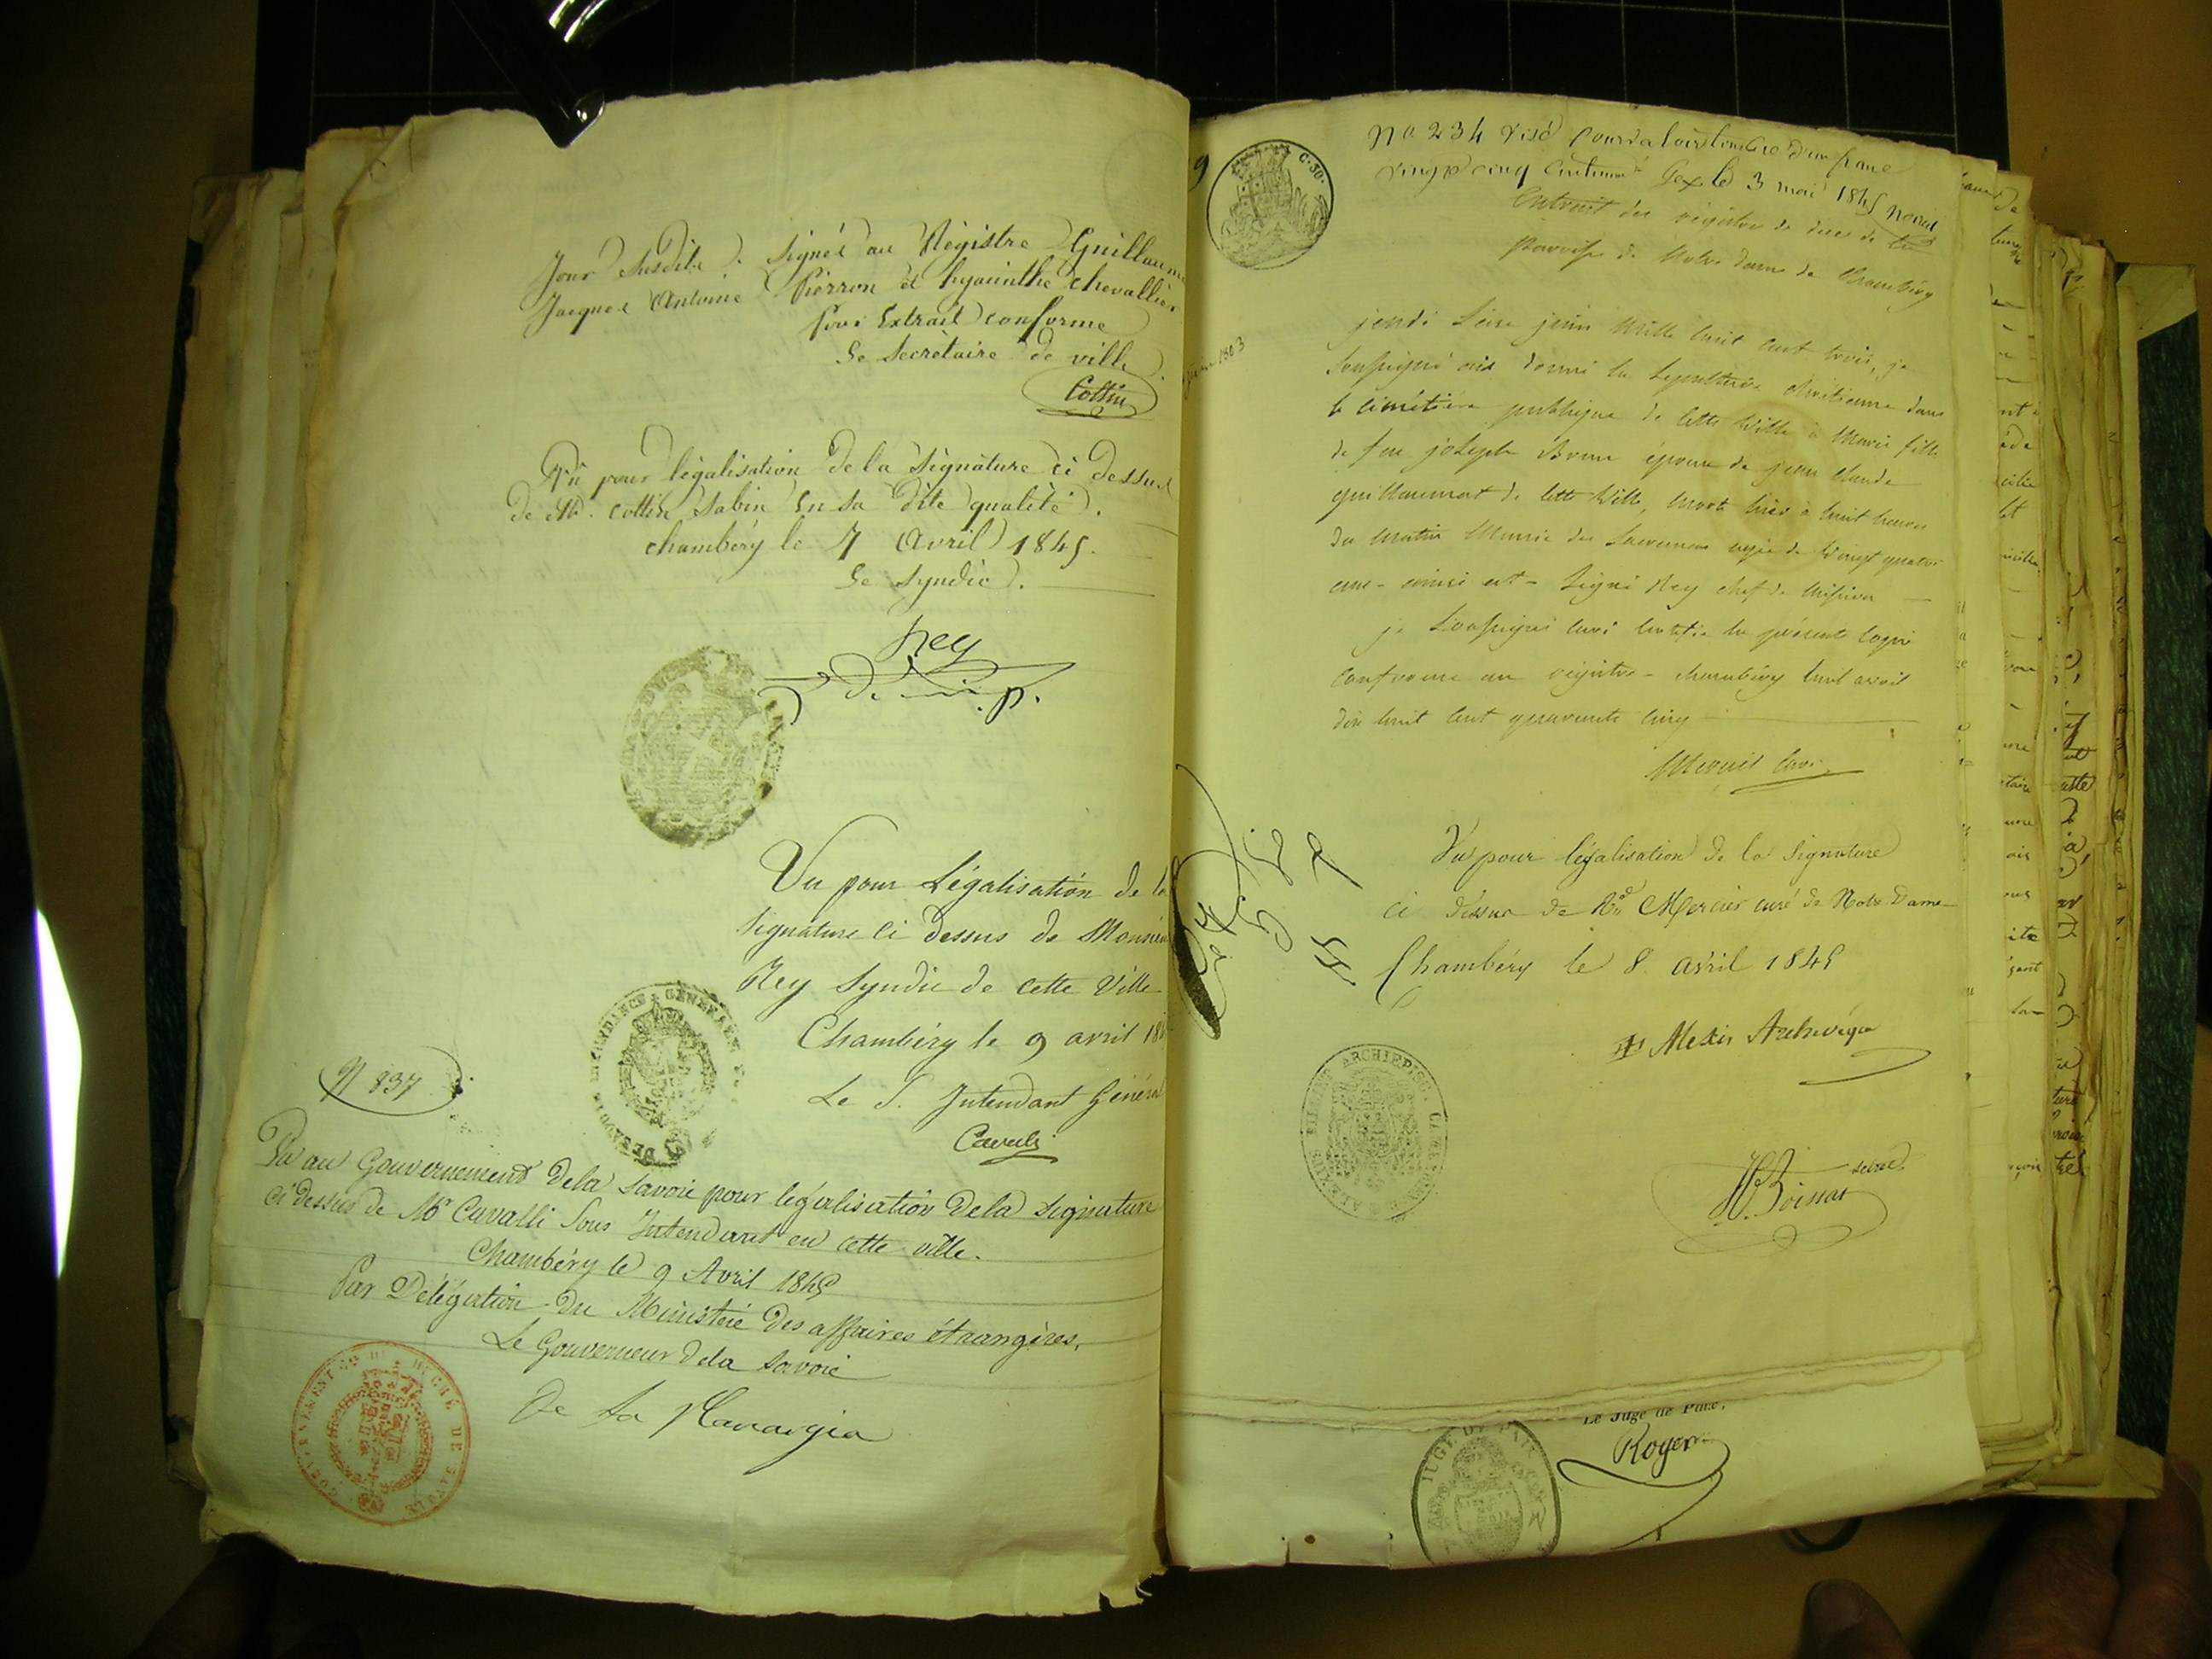 Jour susdit. Signés au Régistre Guillaume
Jacques Antoine Pierron et hyacinthe chevallier
Pour Extrait conforme
Le Secretaire de ville
Collin
Vû pour légalisation de la Signature ci dessus
de M. Collin Sabin En sa dite qualité.
chambéry le 7 Avril 1845.
Le Syndic.
Rey
Vu pour Légalisation de la
signature ci dessus de Monsieur
Rey Syndic de cette Ville
Chambéry le 9 avril 18
Le S. Intendant Général
Cavalli
N 837
Vu au Gouvernement de la Savoie pour légalisation de la Signature
ci dessus de Mr Cavalli Sous Intendant en cette ville.
Chambéry le 9 Avril 1845
Par Délégation du Ministère des affaires étrangères,
Le Gouverneur de la Savoie
De La Planargia
C. 30.
No 234 Visé pour valoir timbre d'un franc
vingt cinq centimes Gex le 3 mai 1845
Extrait des régistres de décès de la
Paroisse de Notre Dame de Chambéry
jeudi Seize juin mille huit cent trois, je
Soussigné ais donné la Sepulture chrétienne dans
le cimétière publique de cette Ville à Marie fille
de feu joseph épouse de jean claude
guillaumot de cette Ville, morte hier à huit heures
du matin Munie des Sacremens agée de Vingt quatre
ans - ainsi est - Signé Rey chef de mission
je Soussigné curé certifie la présente copie
conforme au régistre - chambéry huit avril
dix huit cent quarante cinq
Mercier curé
Vu pour légalisation de la signature
ci dessus de Rd Mercier curé de Notre Dame
Chambéry le 8 avril 1845
Alexis Archevêque
Boissat
Le Juge de Paix,
Royer
JUGE DE PAIX